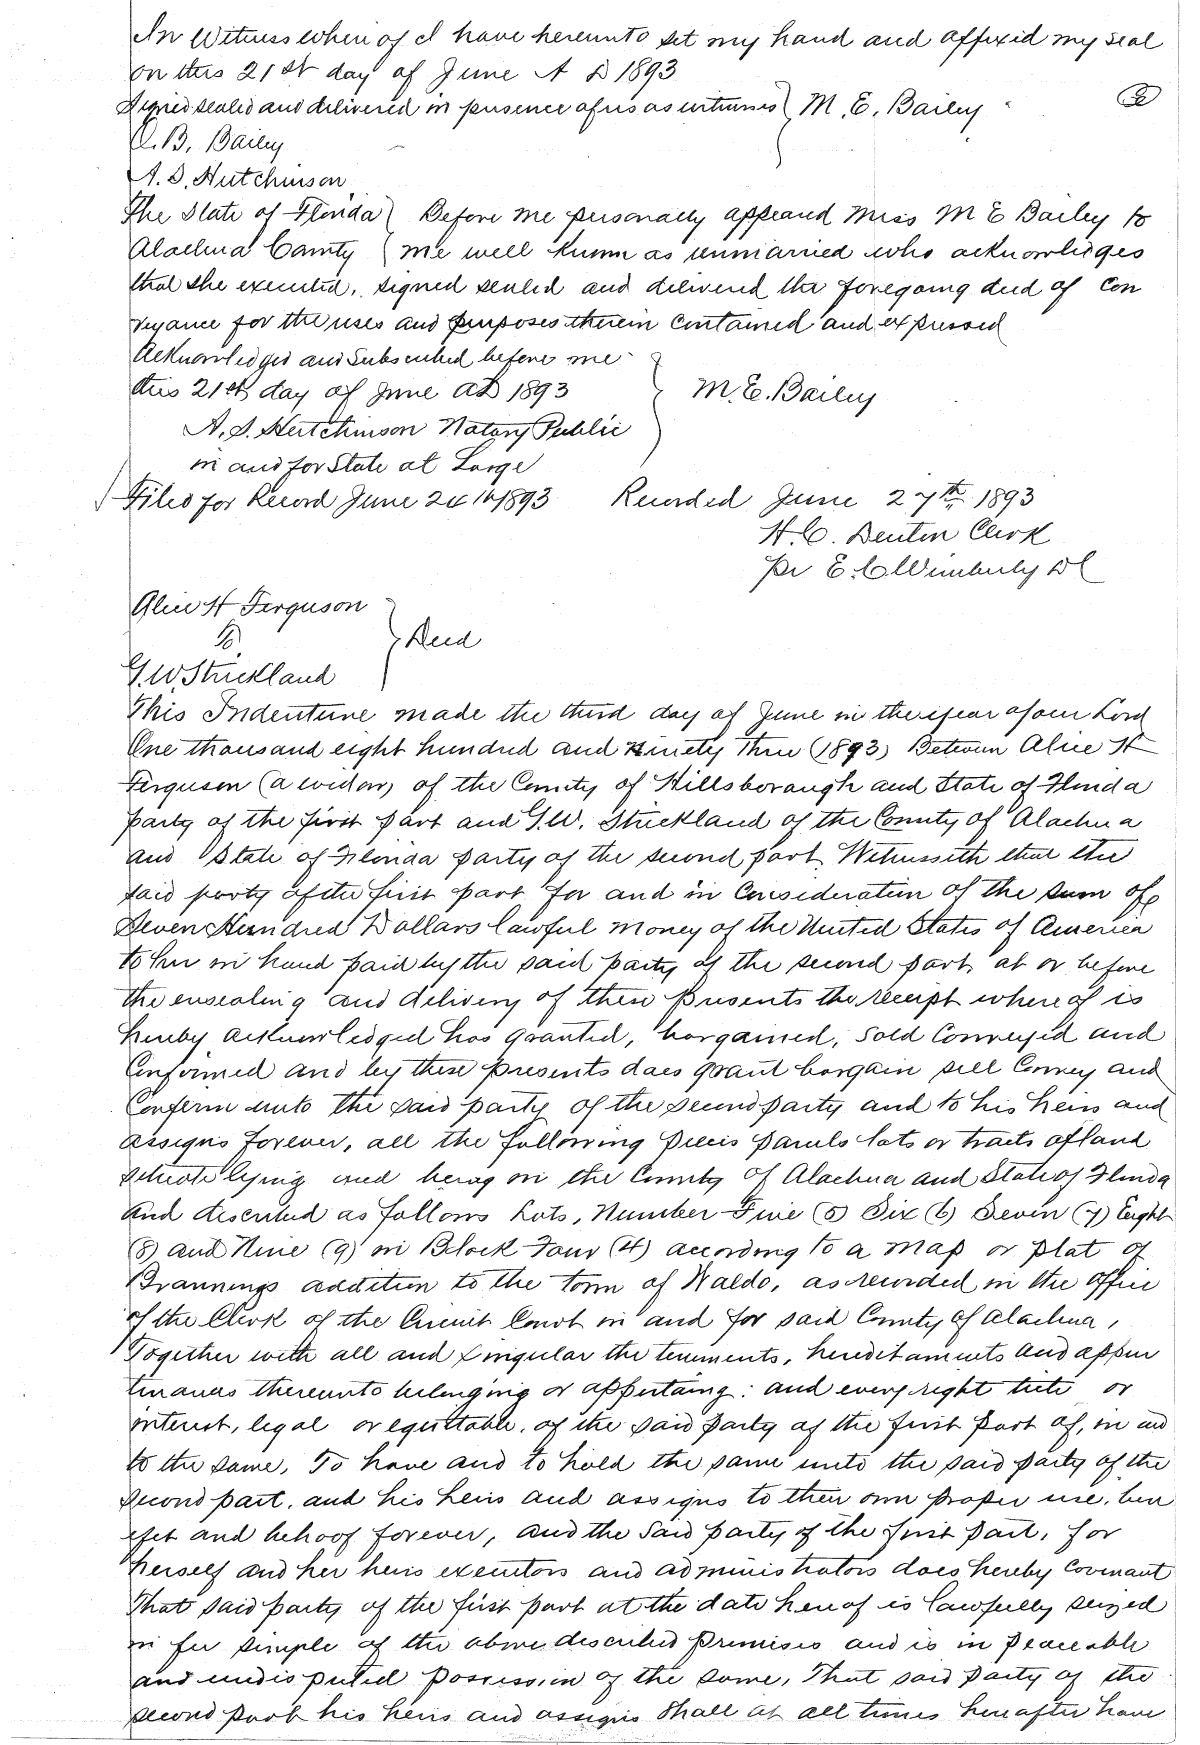 In Witness whereof I have hereunto set my hand and affixed my seal
on this 21st day of June A D 1893
Signed sealed and delivered in presence of us as witnesses M. E. Bailey
O. B. Bailey
A. S. Hutchinson
The State of Florida Before me personally appeared Miss M E Bailey to
Alachua County me well known as unmarried who acknowledges
that she executed, signed sealed and delivered the foregoing deed of Con
veyance for the uses and purposes therein contained and expressed
Acknowledged and Subscribed before me
this 21st day of June AD 1893 M. E. Bailey
A. S. Hutchinson Notary Public
in and for State at Large
Filed for Record June 24th 1893 Recorded June 27th 1893
H. C. Denton Clerk
Pr E. C Wimberly D C
Alice H Ferguson
To Deed
G. W. Strickland
This Indenture made the third day of June in the year of our Lord
One thousand eight hundred and ninety three (1893) Between Alice H
Ferguson (a widow) of the County of Hillsborough and State of Florida
party of the first part and G. W. Strickland of the County of Alachua
and State of Florida party of the second part Witnesseth that the
said party of the first part for and in Consideration of the sum of
Seven Hundred Dollars lawful money of the United States of America
to her in hand paid by the said party of the second part, at or before
the ensealing and delivery of these presents the receipt whereof is
hereby acknowledged has granted, bargained, sold Conveyed and
Confirmed and by these presents does grant bargain sell Convey and
Confirm unto the said party of the second party and to his heirs and
assigns forever, all the following pieces parcels lots or tracts of land
situate lying and being in the County of Alachua and State of Florida
and described as follows Lots, Number Five (5) Six (6) Seven (7) Eight
(8) and Nine (9) in Block Four (4) according to a map or plat of
Brannings addition to the town of Waldo, as recorded in the office
of the Clerk of the Circuit Court in and for said County of Alachua,
Together with all and singular the tenements, hereditaments and appur
tenances thereunto belonging or appertaing: and every right title or
interest, legal or equittable, of the said party of the first part of, in and
to the same, To have and to hold the same unto the said party of the
second part, and his heirs and assigns to their own proper use, ben
efet and behoof forever, and the said party of the first part, for
herself and her heirs executors and administrators does hereby Covenant
That said party of the first part at the date hereof is lawfully seized
in fee simple of the above described premises and is in peaceable
and undisputed possession of the same, That said party of the
second part his heirs and assigns shall at all times hereafter have